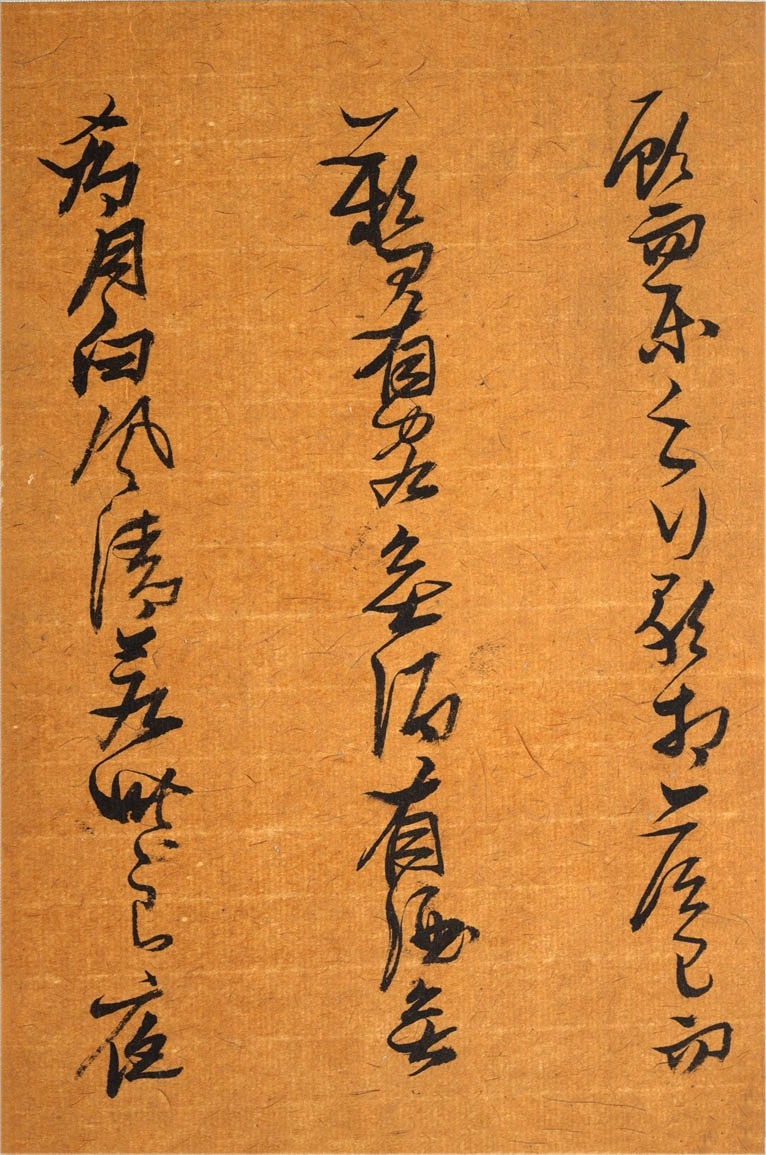 顧而樂之行歌相答已而
歎曰有客無酒有酒無
肴月白風清若此良夜